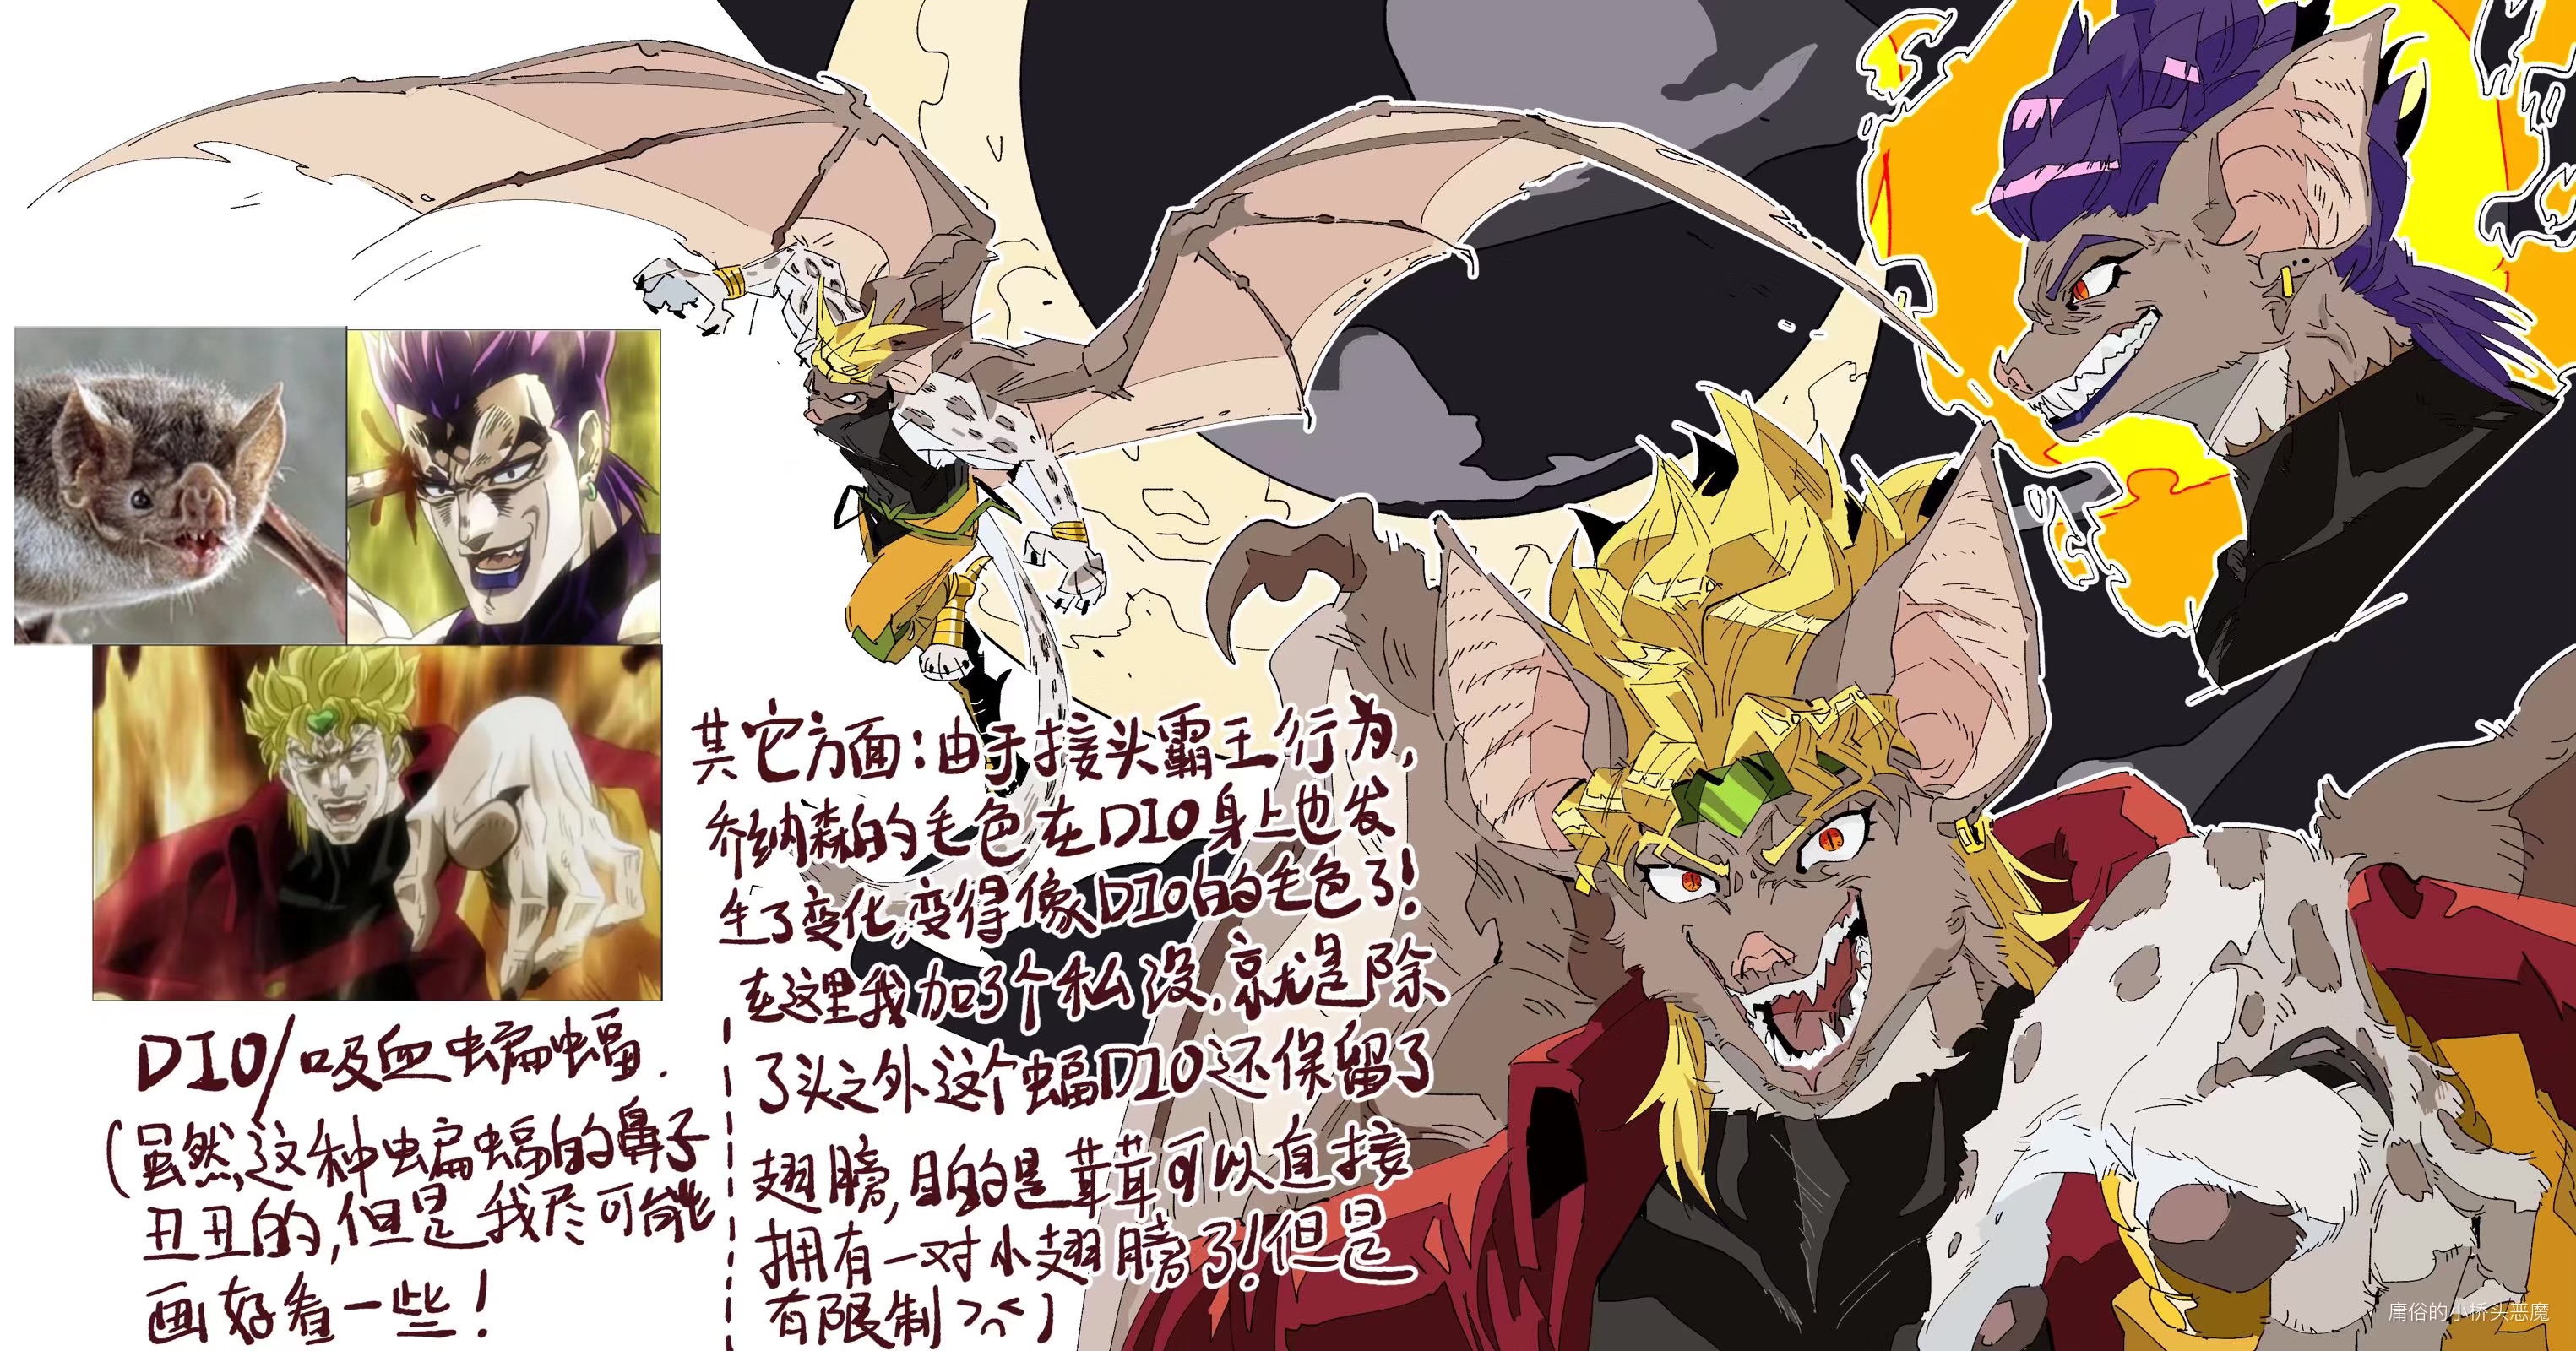 DIO/吸血蝙蝠.
(虽然这种蝙蝠的鼻子
丑丑的,但是我尽可能
画好看一些!
其它方面:由于接头霸王行为,
乔纳森的毛色在DIO身上也发
生了变化,变得像DIO的毛色了!
在这里我加了个私设,就是除
了头之外这个蝠DIO还保留了
翅膀,目的是茸茸可以直接
拥有一对小翅膀了!但是
有限制>^<)
庸俗的小桥头恶魔